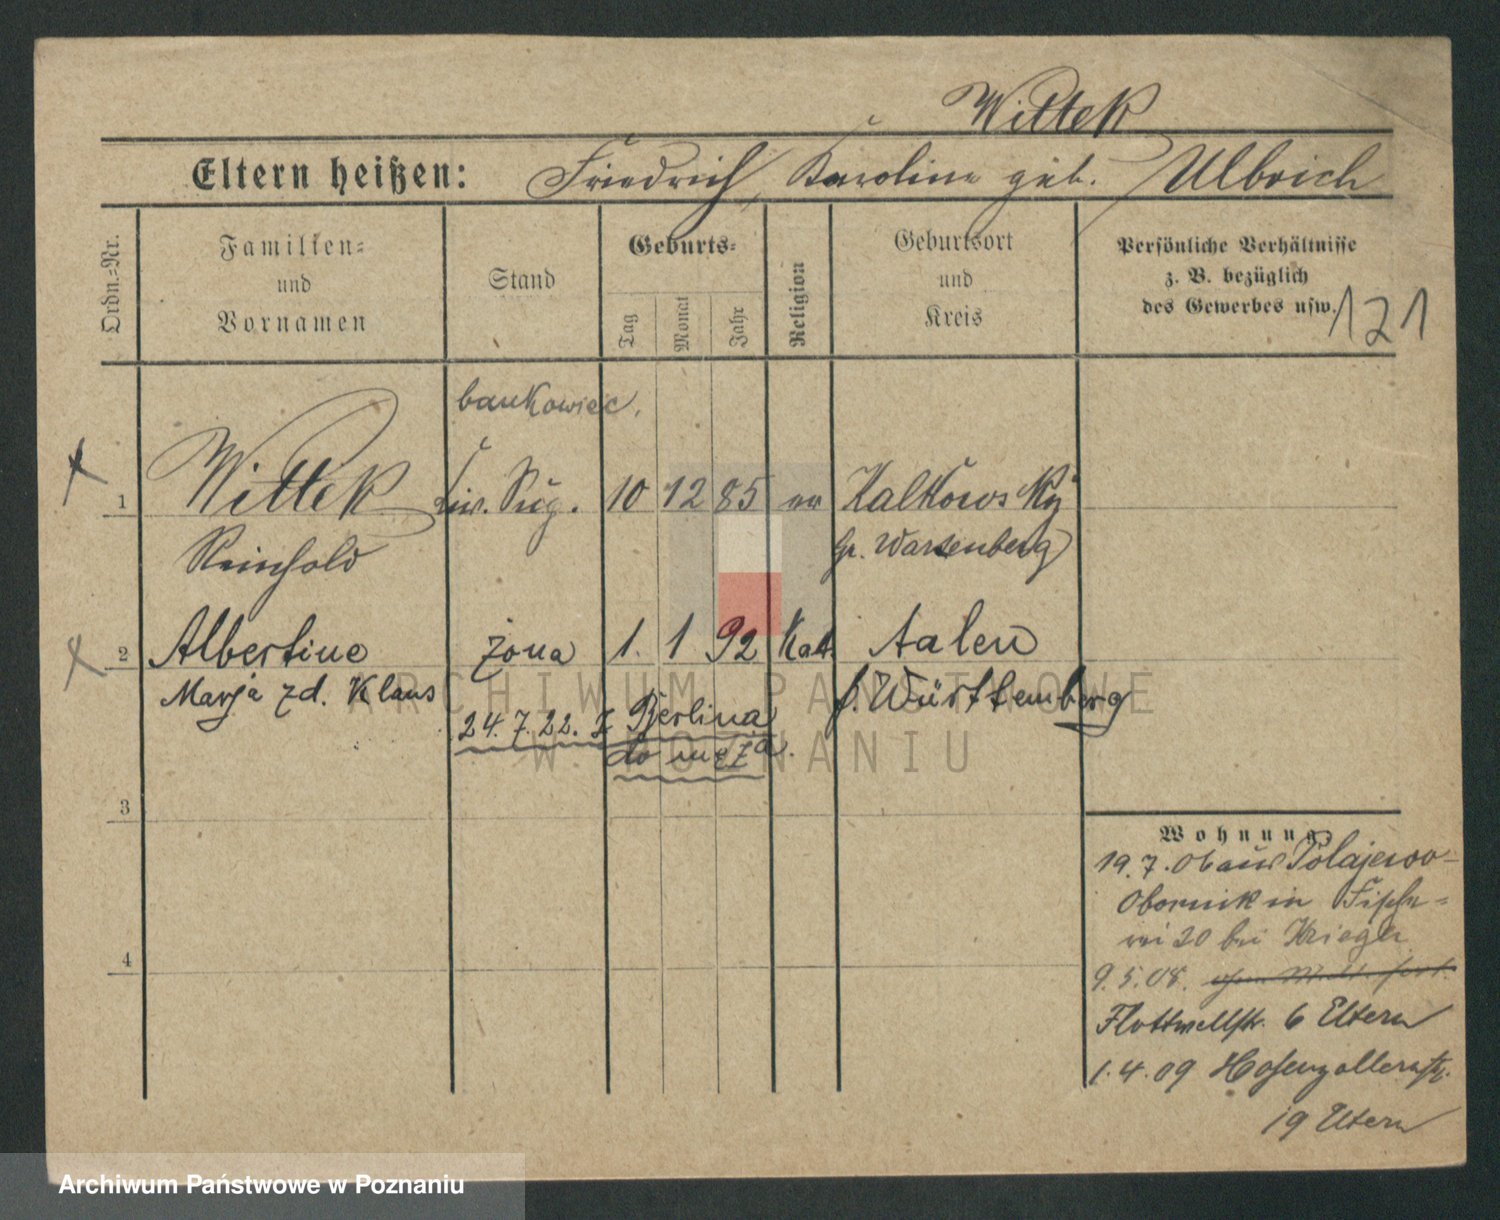 Wittek
Eltern heißen: Friedrich, Karoline geb. Ulbrich
Ordn.=Nr.
Familien=
und
Vornamen
Stand
Geburts=
Tag
Monat
Jahr
Religion
Geburtsort
und
Kreis
Persönliche Verhältnisse
z. B. bezüglich
des Gewerbes usw.
121
bankowiec.
1 Wittek Civ. Sup. 10 12 85 ev Kalkowsky
Reinhold Gr. Wartenberg
2 Albertine żona 1. 1 92 Kat. Aalen
Marja zd. Klaus
f. Württemberg
24.7.22. Z Berlina
do męża.
3
4
Wohnung
19.7.06 aus Polajewo-
Obornik in Fische-
rei 20 bei Krieger
9.5.08.
Flottwellstr. 6 Eltern
1.4.09 Hohenzollernstr.
19 Eltern
ARCHIWUM PAŃSTWOWE
W POZNANIU
Archiwum Państwowe w Poznaniu